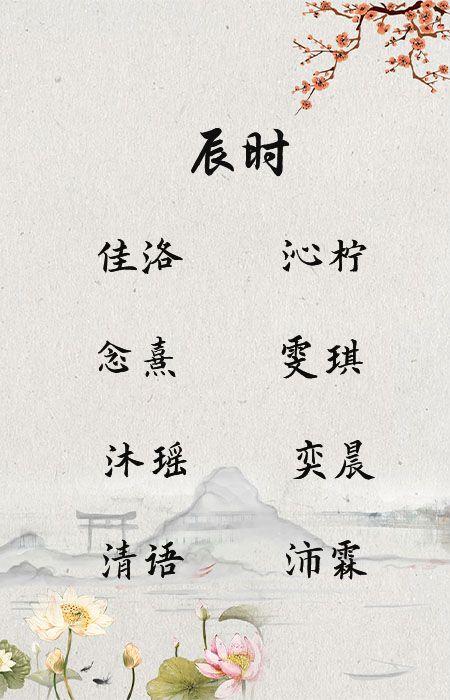 辰时
佳洛 沁柠
念熹 雯琪
沐瑶 奕晨
清语 沛霖